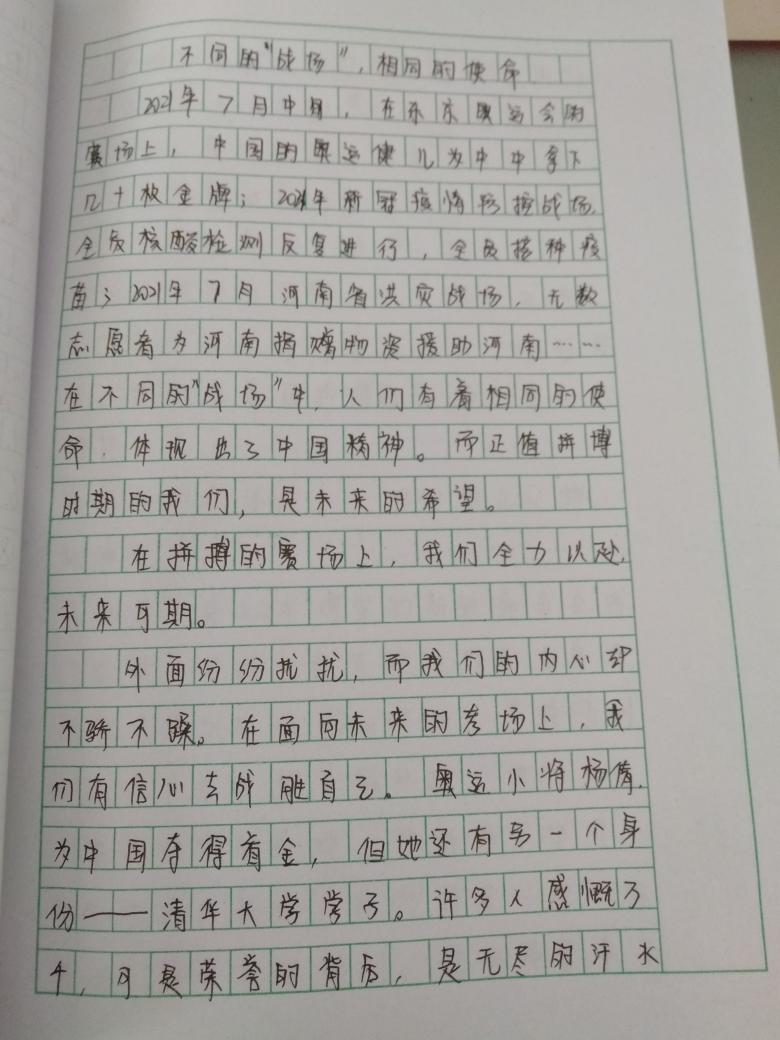 不同的“战场”,相同的使命
2021年7月中旬,在东京奥运会的
赛场上,中国的奥运健儿为中中拿下
几十枚金牌;2021年新冠疫情防控战场,
全员核酸检测反复进行,全员接种疫
苗;2021年7月河南省洪灾战场,无数
志愿者为河南捐赠物资援助河南……
在不同的“战场”中,人们有着相同的使
命,体现出了中国精神。而正值拼博
时期的我们,是未来的希望。
在拼搏的赛场上,我们全力以赴,
未来可期。
外面纷纷扰扰,而我们的内心却
不骄不躁。在面向未来的考场上,我
们有信心去战胜自己。奥运小将杨倩,
为中国夺得首金,但她还有另一个身
份——清华大学学子。许多人感慨了
,可是荣誉的背后,是无尽的汗水